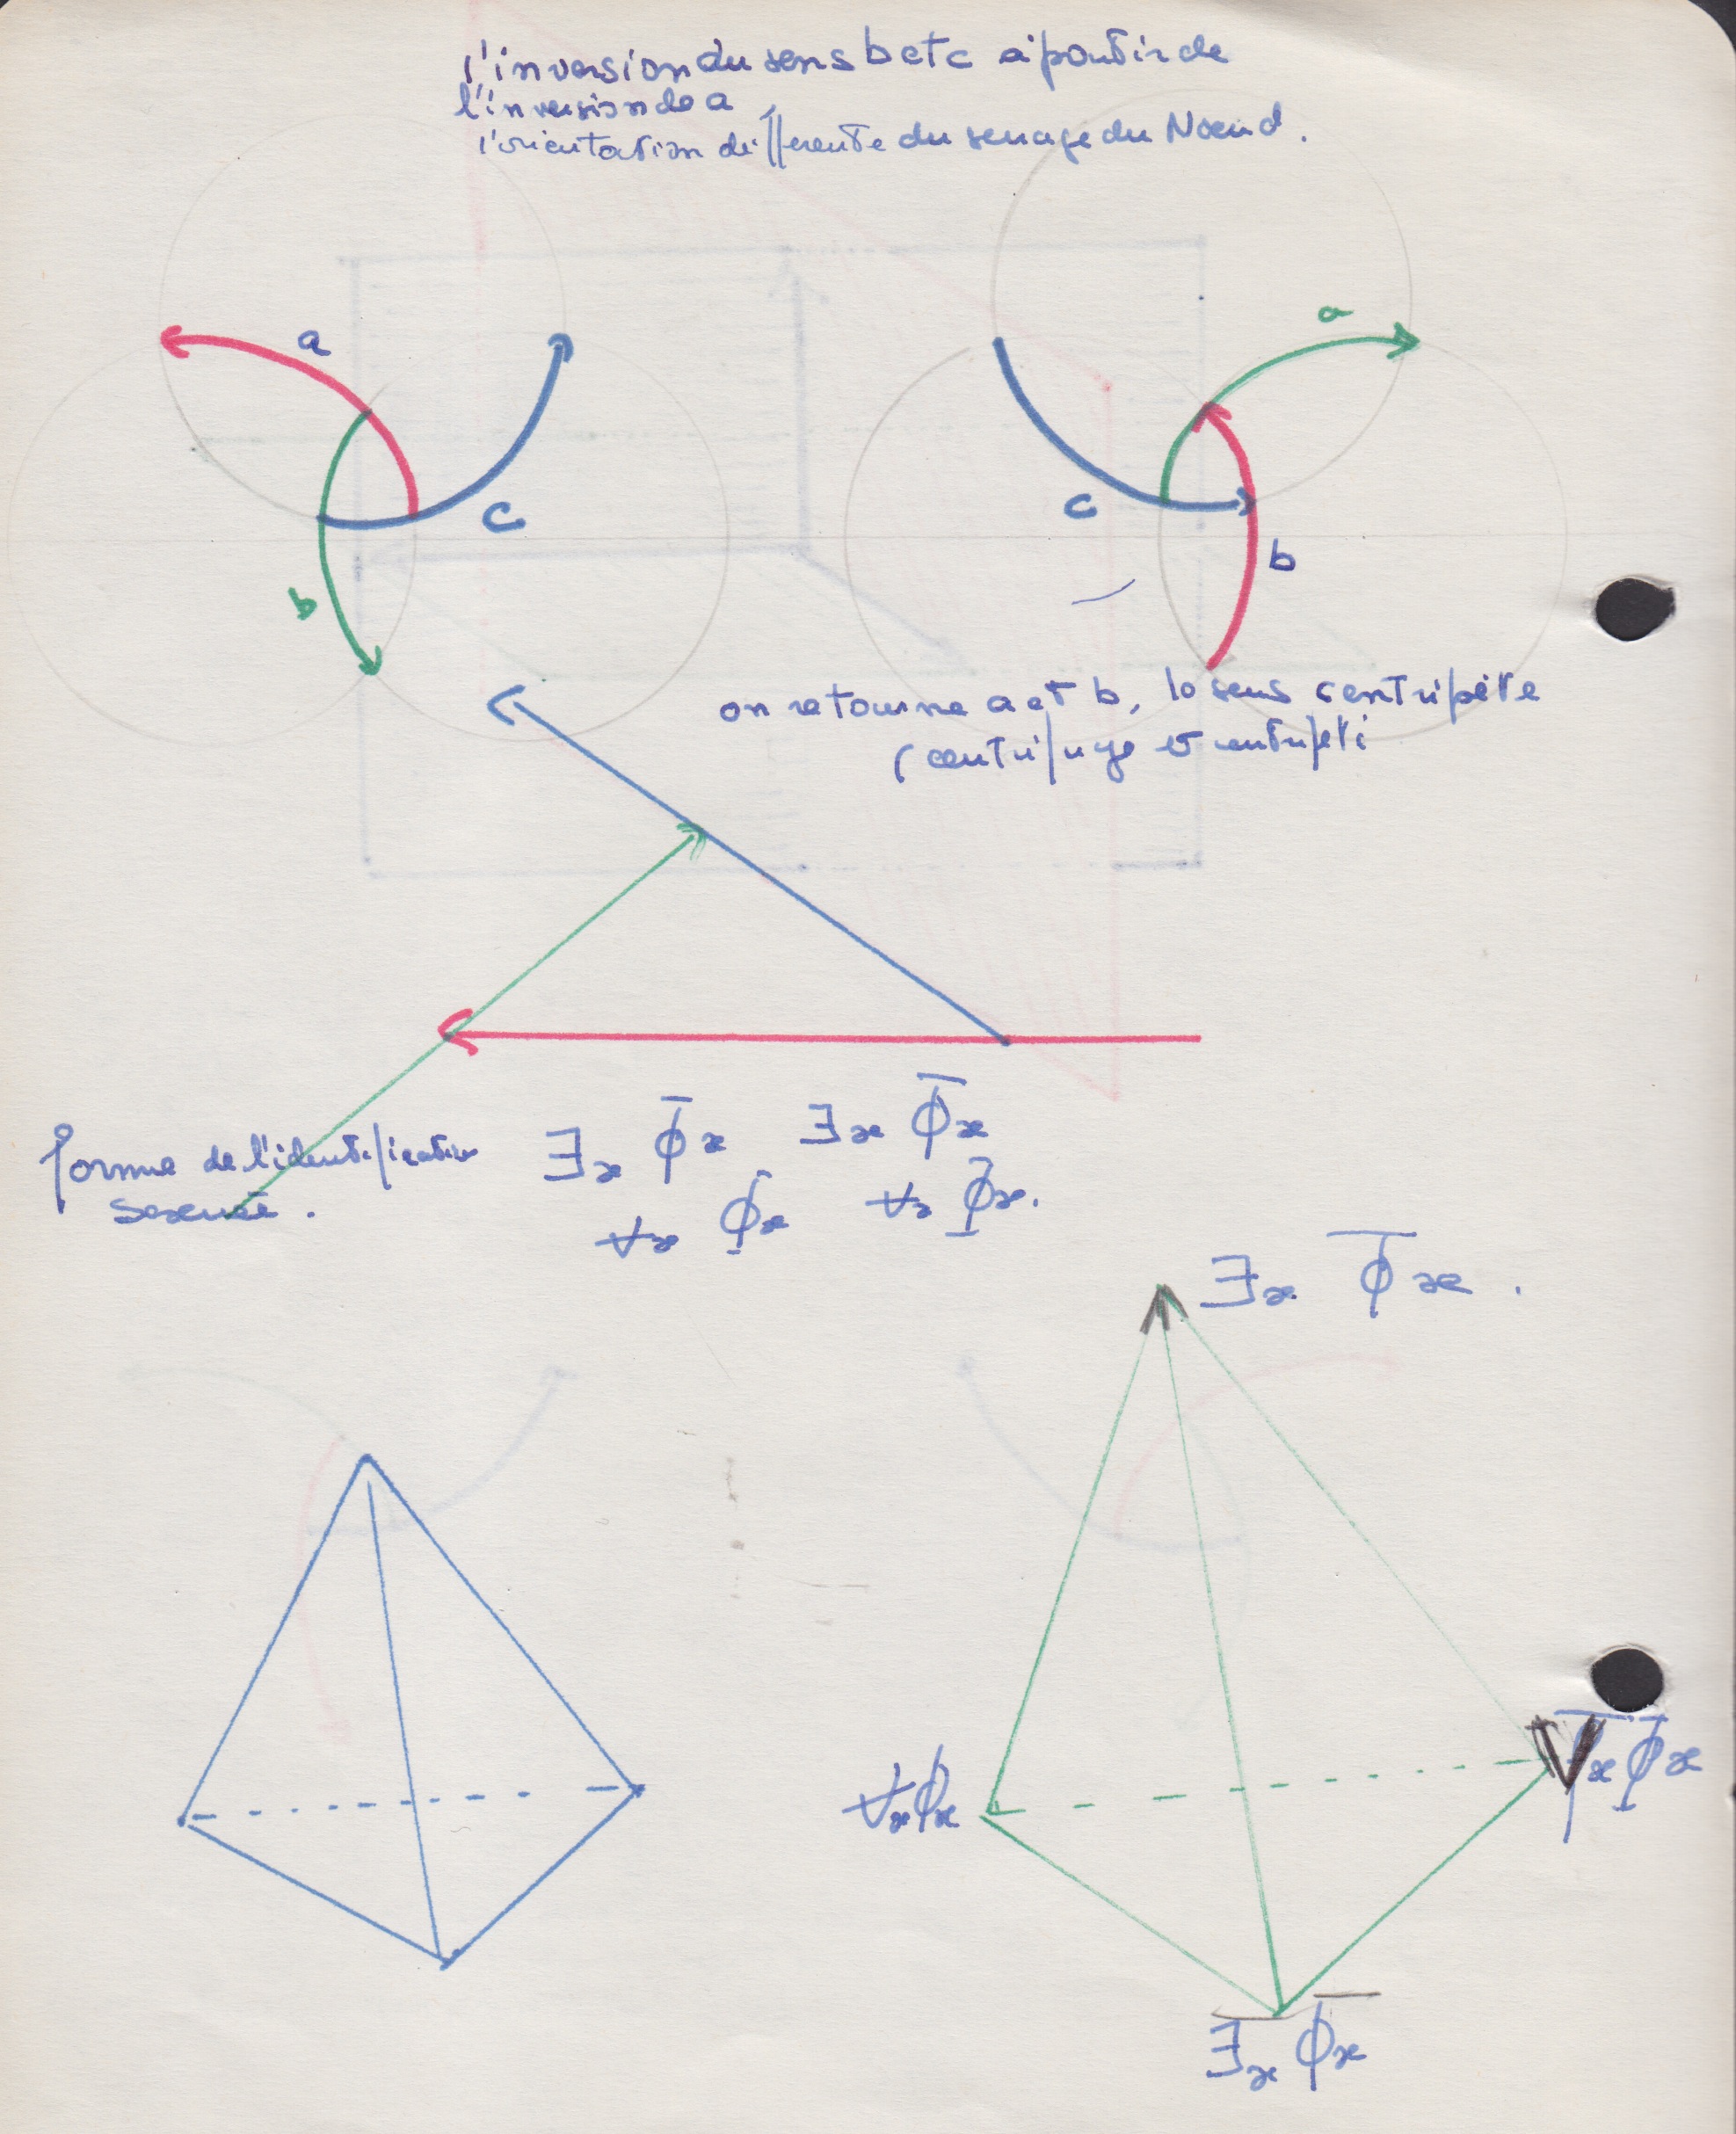 l'inversion du sens b et c à partir de
l'inversion de a
l'orientation différente du serrage du Noeud.
a
a
c
c
b
b
on retourne a et b, le sens centripète
(centrifuge
forme de l'identification
sexuée.
∃x Φ̅x ∃x Φ̅x
∀x Φx ∀x Φx.
∃x Φ̅x .
∀x Φx
Φx
∃̅x Φ̅x